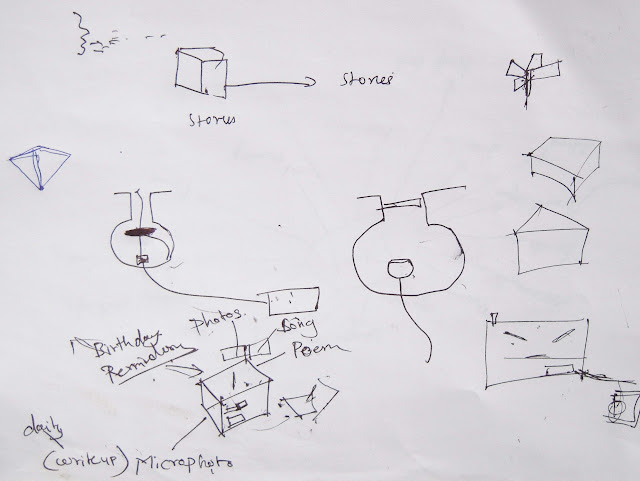 Stories
Stories
Photos.
Song
Poem
Birthday
Reminders
daily
(writeup) Microphoto